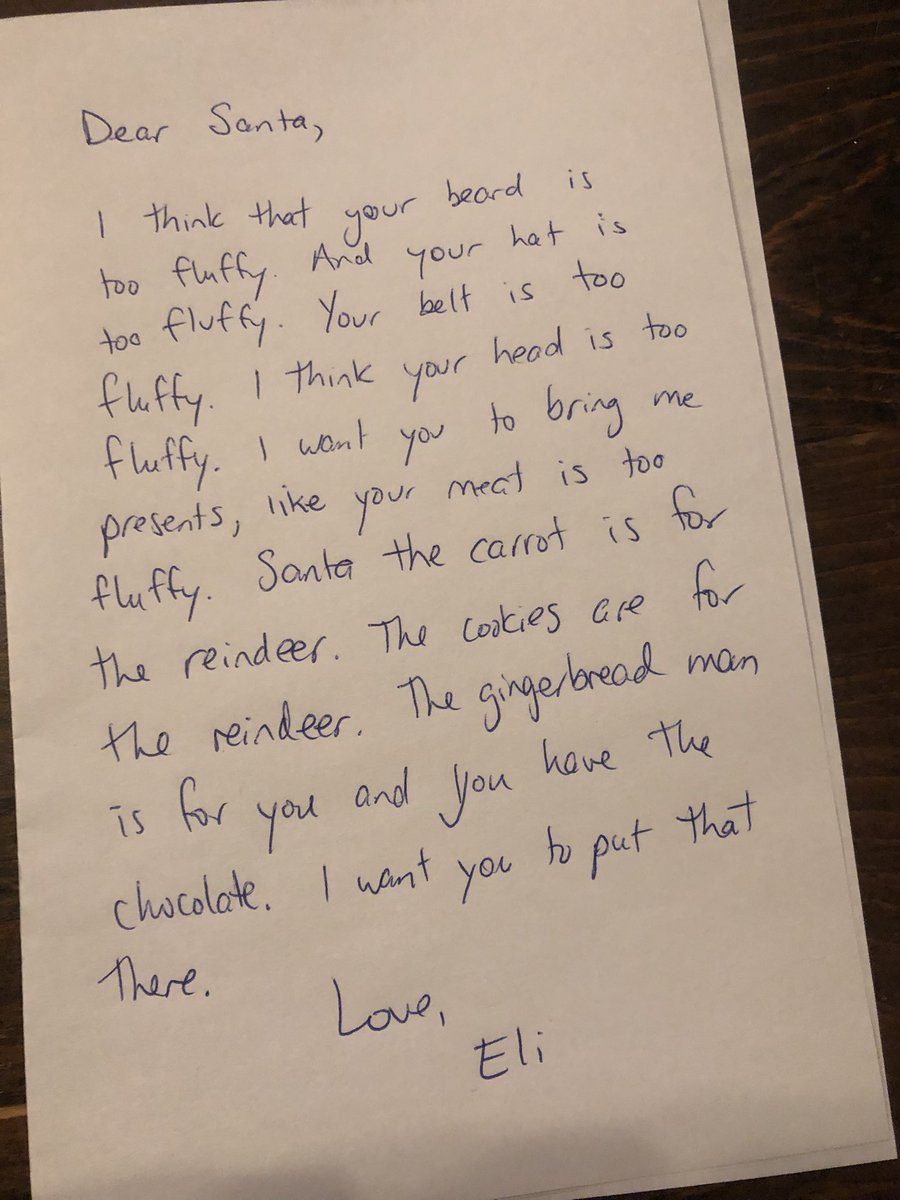 Dear Santa,
I think that your beard is
too fluffy. And your hat is
too fluffy. Your belt is too
fluffy. I think your head is too
fluffy. I want you to bring me
presents, like your meat is too
fluffy. Santa the carrot is for
the reindeer. The cookies are for
the reindeer. The gingerbread man
is for you and you have the
chocolate. I want you to put that
there.
Love,
Eli